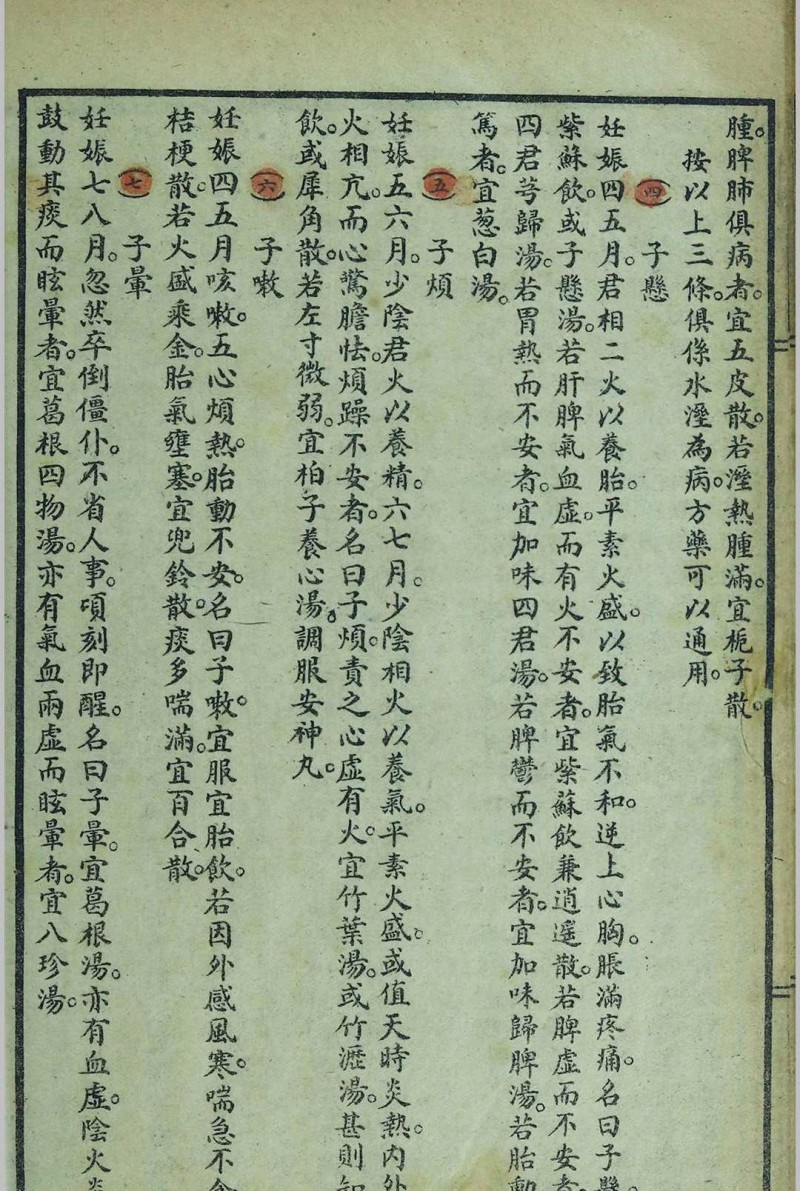 腫。脾肺俱病者。宜五皮散。若溼熱腫滿。宜梔子散。
按以上三條。俱係水溼為病。方藥可以通用。
四 子懸
妊娠四五月。君相二火以養胎。平素火盛。以致胎氣不和。逆上心胸。脹滿疼痛。名曰子懸。
紫蘇飲。或子懸湯。若肝脾氣血虛。而有火不安者。宜紫蘇飲兼逍遙散。若脾虛而不安者。
四君芎歸湯。若胃熱而不安者。宜加味四君湯。若脾鬱而不安者。宜加味歸脾湯。若胎動
篤者。宜葱白湯。
五 子煩
妊娠五六月。少陰君火以養精。六七月。少陰相火以養氣。平素火盛。或值天時炎熱。內外
火相亢。而心驚膽怯。煩躁不安者。名曰子煩。責之心虛有火。宜竹葉湯。或竹瀝湯。甚則知
飲。或犀角散。若左寸微弱。宜柏子養心湯。調服安神丸。
六 子嗽
妊娠四五月咳嗽。五心煩熱。胎動不安。名曰子嗽。宜服宜胎飲。若因外感風寒。喘急不食
桔梗散。若火盛乘金。胎氣壅塞。宜兜鈴散。痰多喘滿。宜百合散。
七 子暈
妊娠七八月。忽然卒倒僵仆。不省人事。項刻即醒。名曰子暈。宜葛根湯。亦有血虛。陰火炎
鼓動其痰而眩暈者。宜葛根四物湯。亦有氣血兩虛而眩暈者。宜八珍湯。